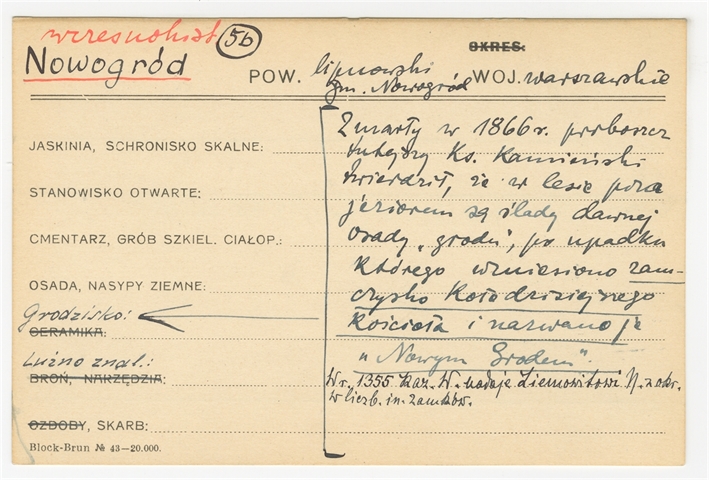 wczesnohist 56
OKRES:
Nowogród
POW. lipnowski WOJ. warszawskie
gm. Nowogród
JASKINIA, SCHRONISKO SKALNE:
STANOWISKO OTWARTE:
CMENTARZ, GRÓB SZKIEL. CIAŁOP.:
OSADA, NASYPY ZIEMNE:
Grodzisko:
CERAMIKA:
Luźno znal.:
BROŃ, NARZĘDZIA:
OZDOBY, SKARB:
Block-Brun № 43—20.000.
Zmarły w 1866 r. proboszcz
tutejszy Ks. Kamieński
twierdził, że w lesie poza
jeziorem są ślady dawnej
osady „grodu", po upadku
którego wzniesiono zam-
czysko koło dzisiejnego
kościoła i nazwano je
„Nowym Grodem".
W r. 1355 Kaz. W. nadaje Ziemowitowi N. z okr.
w liczb. in. zamków.